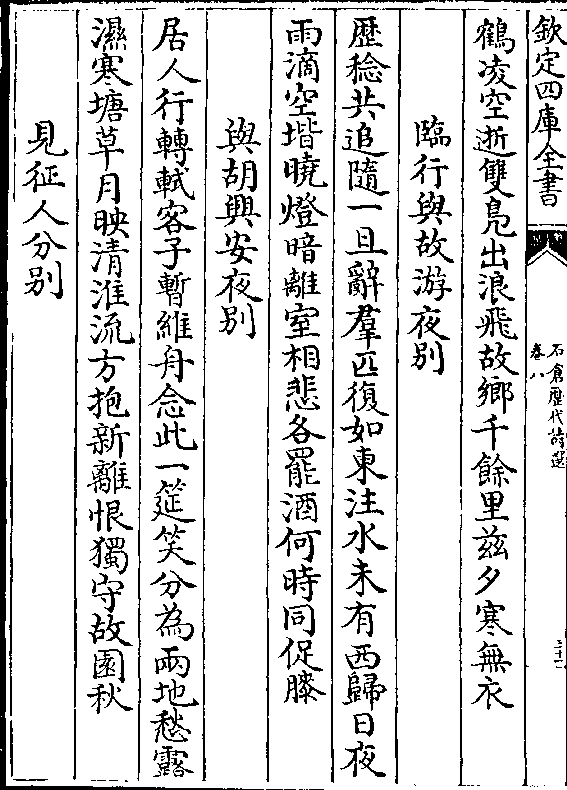 欽定四庫全書
石倉歷代詩選
卷八
三十一
鶴凌空逝雙鳧出浪飛故鄉千餘里茲夕寒無衣
臨行與故游夜别
歷稔共追隨一旦辭羣匹復如東注水未有西歸日夜
雨滴空堦曉燈暗離室相悲各罷酒何時同促膝
與胡興安夜别
居人行轉軾客子暫維舟念此一筵笑分為兩地愁露
濕寒塘草月映清淮流方抱新離恨獨守故園秋
見征人分别